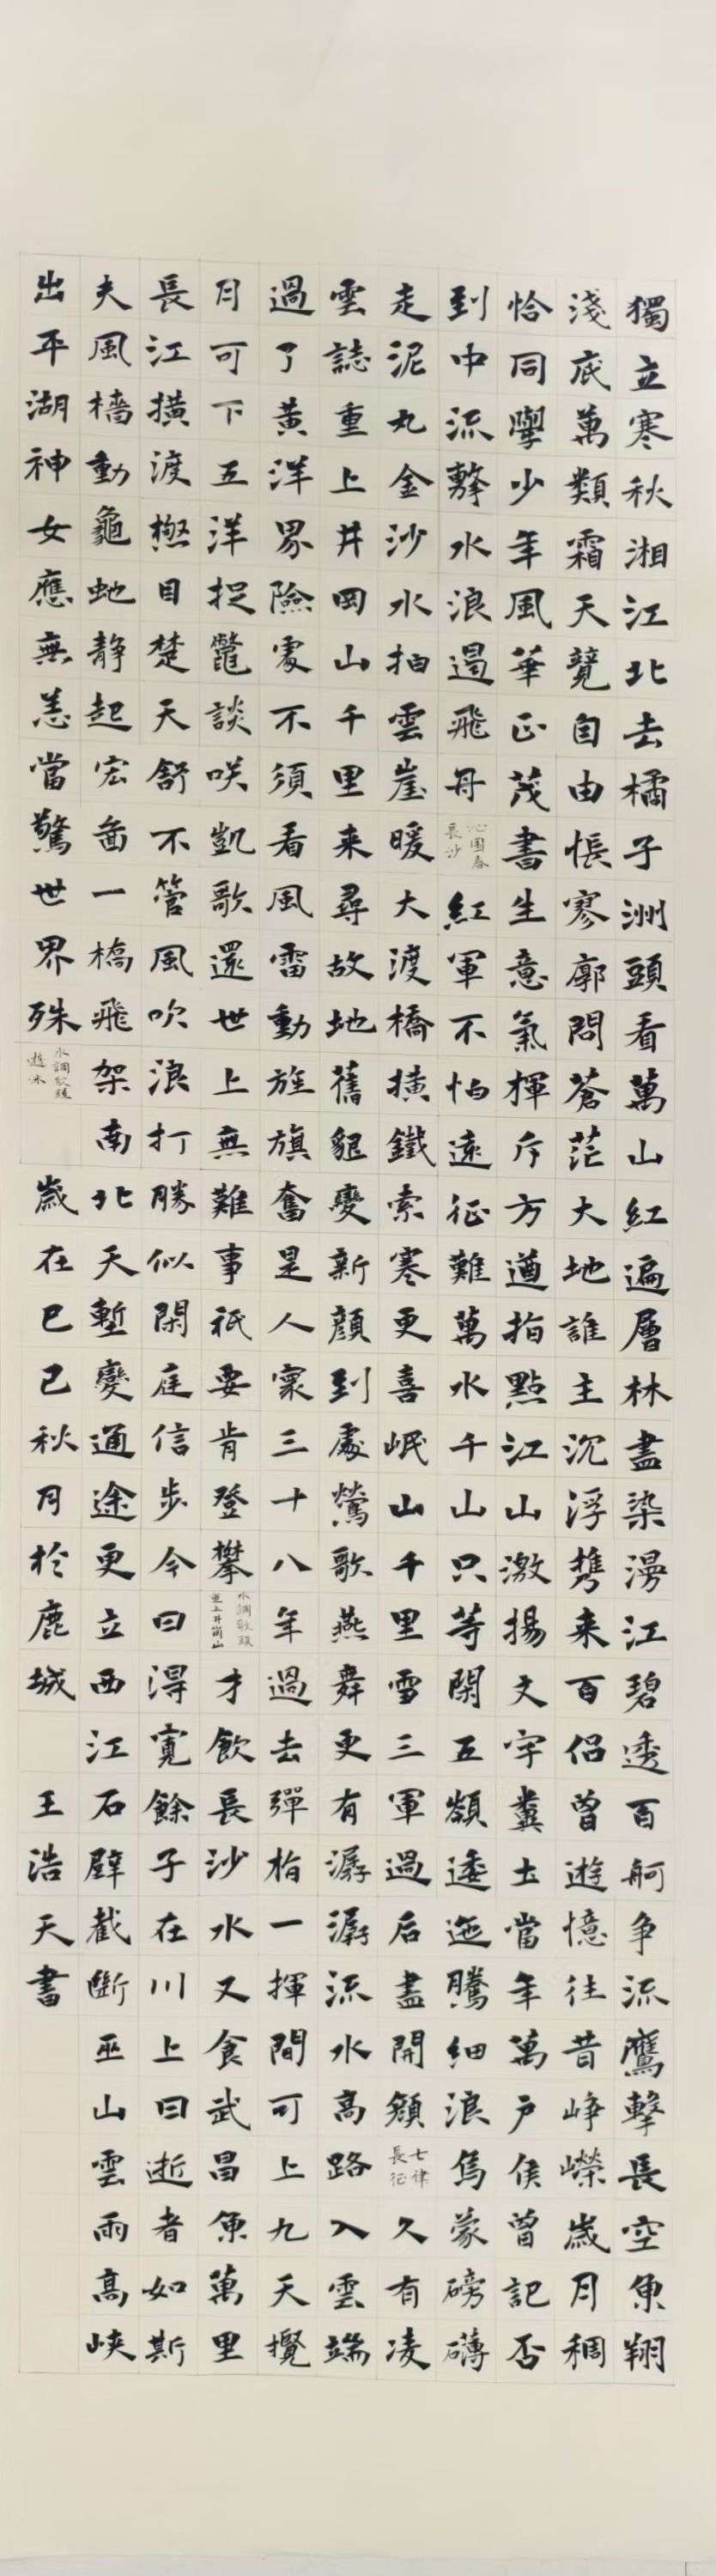 獨立寒秋湘江北去橘子洲頭看萬山紅遍層林盡染漫江碧透百舸争流鷹擊長空魚翔
淺底萬類霜天競自由悵寥廓問蒼茫大地誰主沉浮携来百侣曾遊憶往昔崢嶸歲月稠
恰同學少年風華正茂書生意氣揮斥方遒指點江山激揚文字糞土當年萬户侯曾記否
到中流擊水浪遏飛舟沁園春長沙紅軍不怕遠征難萬水千山只等閑五嶺逶迤騰細浪烏蒙磅礴
走泥丸金沙水拍雲崖暖大渡橋橫鐵索寒更喜岷山千里雪三軍過后盡開顏七律長征久有凌
雲誌重上井岡山千里来尋故地舊貌變新顏到處鶯歌燕舞更有潺潺流水高路入雲端
過了黃洋界險處不須看風雷動旌旗奮是人寰三十八年過去彈指一揮間可上九天攬
月可下五洋捉鼈談咲凱歌還世上無難事祇要肯登攀水調歌頭重上井崗山才飲長沙水又食武昌魚萬里
長江橫渡極目楚天舒不管風吹浪打勝似閑庭信步今日得寬餘子在川上曰逝者如斯
夫風檣動龜虵静起宏圖一橋飛架南北天塹變通途更立西江石壁截斷巫山雲雨高峽
出平湖神女應無恙當驚世界殊水調歌頭遊泳歲在巳己秋月於鹿城王浩天書